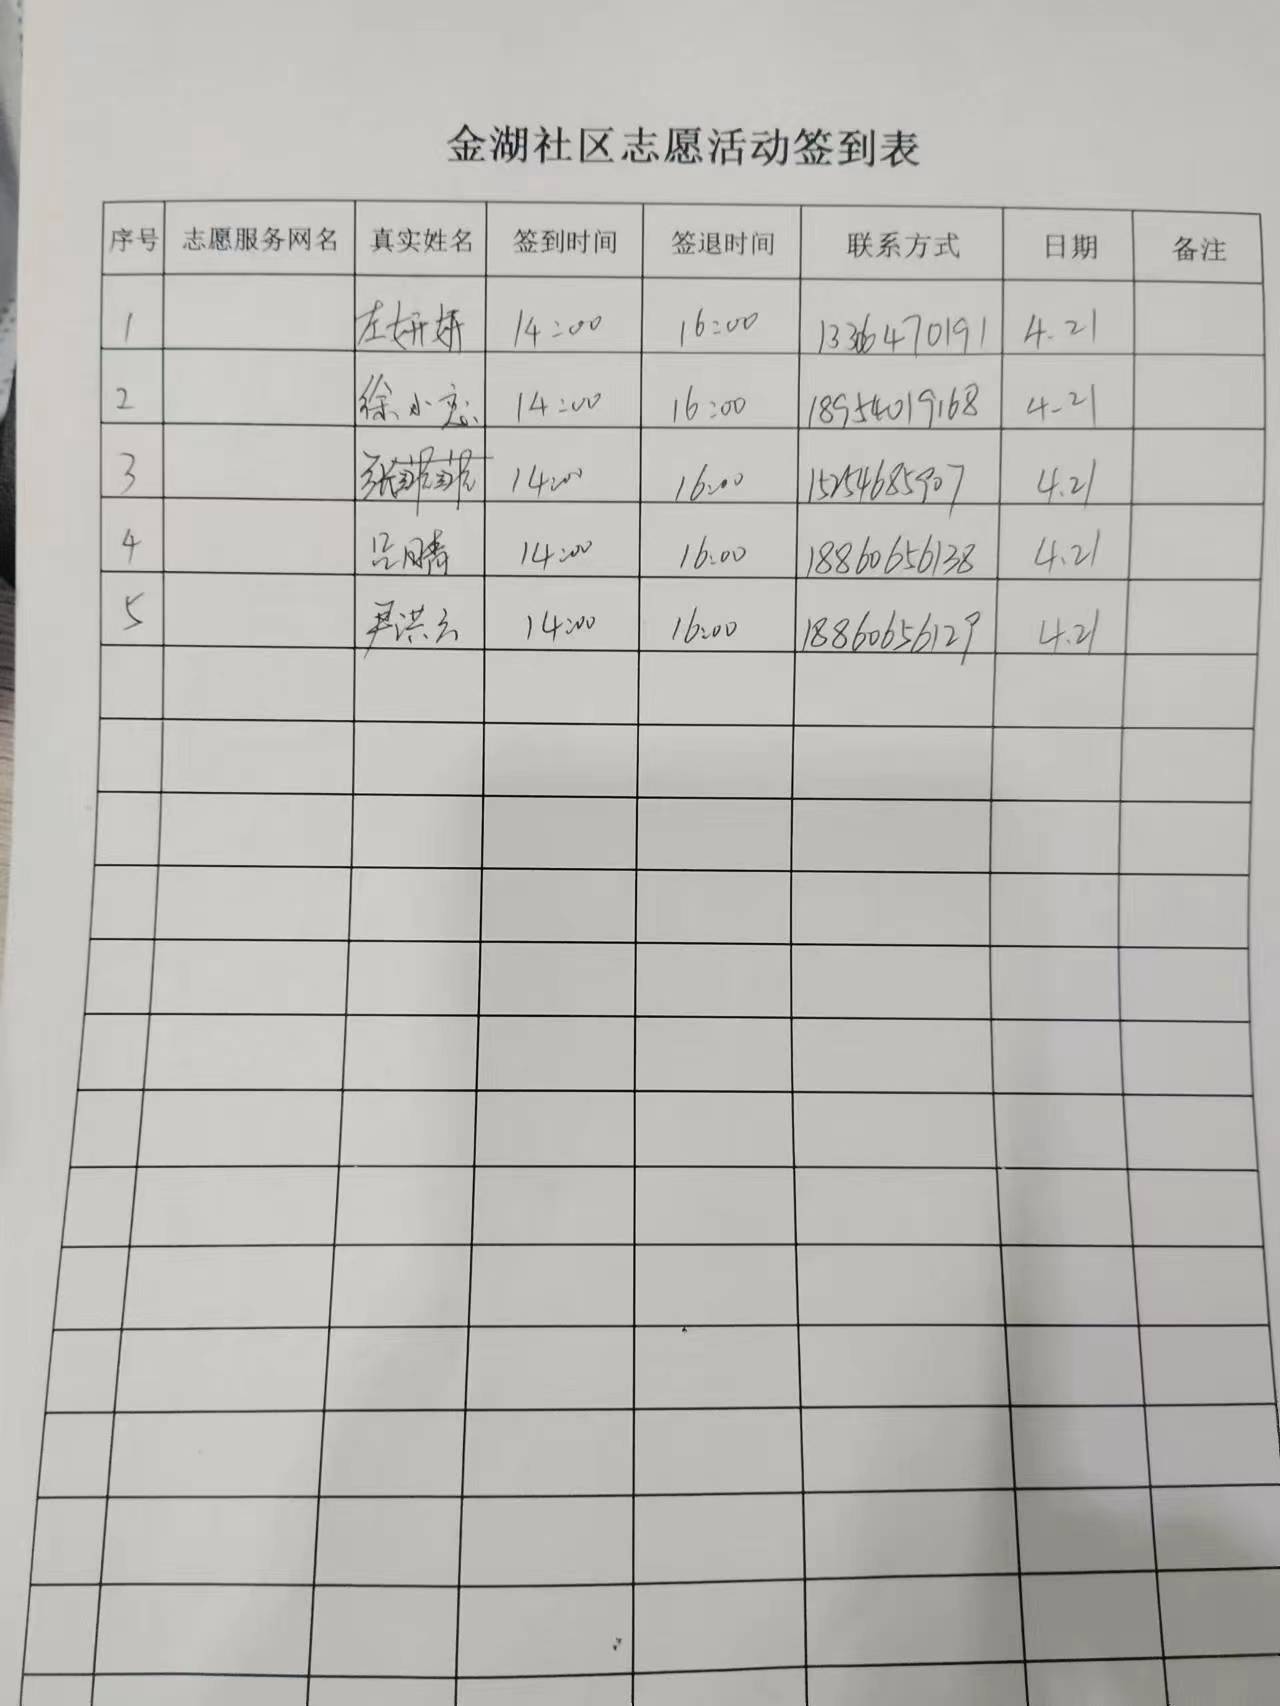 金湖社区志愿活动签到表
序号 志愿服务网名 真实姓名 签到时间 签退时间 联系方式 日期 备注
1 左妍妍 14:00 16:00 4.21
2 徐小恋 14:00 16:00 18954019168 4.21
3 张菲菲 14:00 16:00 15254685907 4.21
4 吕晴 14:00 16:00 18860656138 4.21
5 尹洪云 14:00 16:00 18860656129 4.21